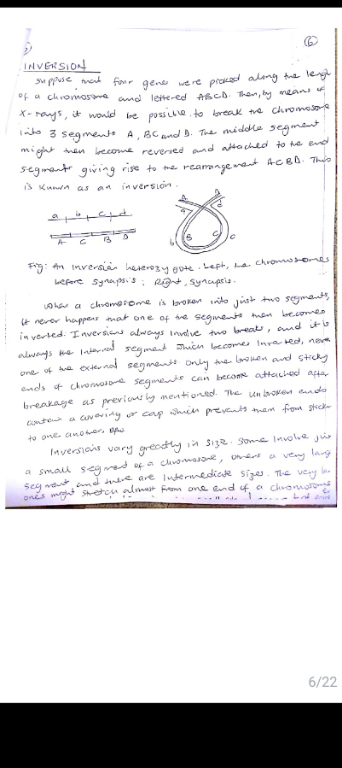 6
INVERSION
Suppose that four genes were placed along the length
of a chromosome and lettered ABCD. Then, by means of
X-rays, it would be possible to break the chromosome
into 3 segments A, BC and D. The middle segment
might then become reversed and attached to the end
segments giving rise to the rearrangement ACBD. This
is known as an inversion.
a b c d
A C B D
A D
a d
b B C c
Fig: An inversion heterozygote. Left, the chromosomes
before synapsis; Right, Synapsis.
When a chromosome is broken into just two segments,
it never happens that one of the segments then becomes
inverted. Inversions always involve two breaks, and it is
always the internal segment which becomes inverted, never
one of the external segments. Only the broken and sticky
ends of chromosome segments can become attached after
breakage as previously mentioned. The unbroken ends
contain a covering or cap which prevents them from
to one another.
Inversions vary greatly in size. Some involve
a small segment of a chromosome, others a very
segment and there are Intermediate sizes. The very
ones might stretch almost from one end of a chromosome
6/22